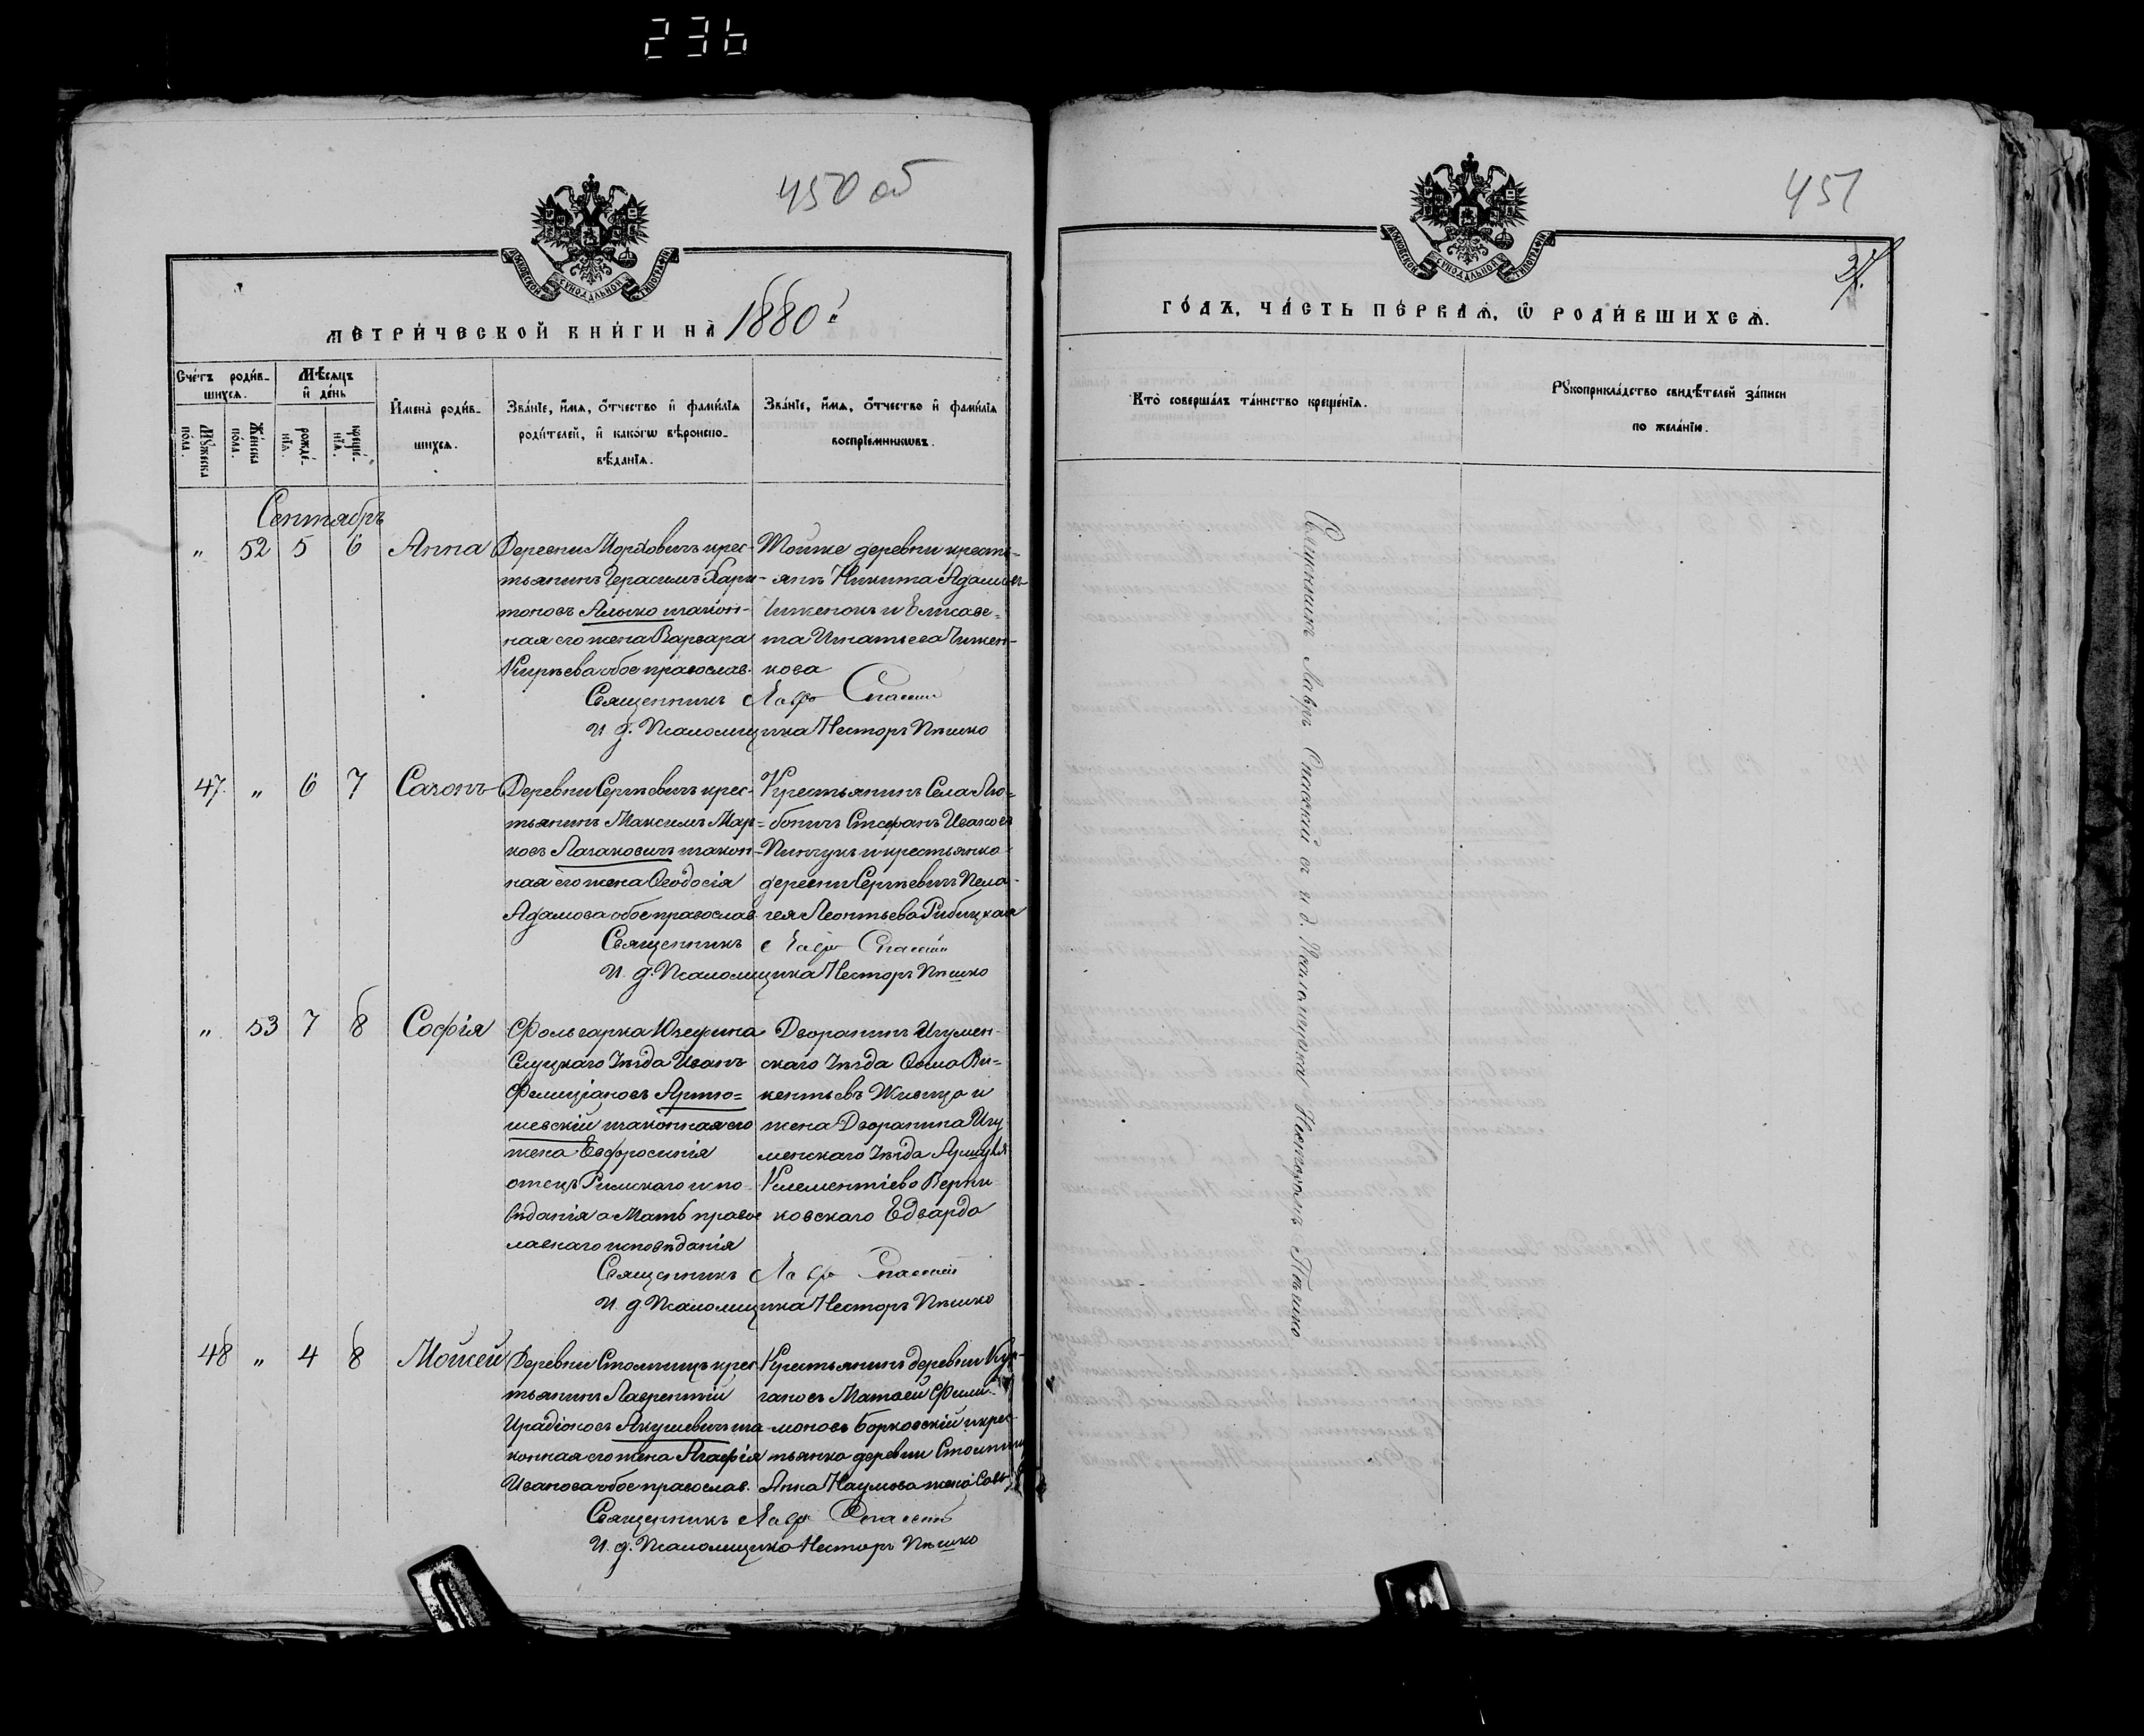 236
450 об
МОСКОВСКОЙ СѴНОДАЛЬНОЙ ТИПОГРАФІИ
МЕТРИ́ЧЕСКОЙ КНИ́ГИ НА̀ 1880 г.
Сче́тъ роди́в-
шихсѧ.
Мѣ́сѧцъ
и҆ де́нь
Мꙋ́жеска
по́ла.
Же́нска
по́ла.
рожде́-
нїѧ.
креще́-
нїѧ.
И҆мена̀ роди́в-
шихсѧ.
Зва́нїе, и҆́мѧ, ѻ҆́тчество и҆ фамі́лїѧ
роди́телей, и҆ како́гѡ вѣроиспо-
вѣ́данїѧ.
Зва́нїе, и҆́мѧ, ѻ҆́тчество и҆ фамі́лїѧ
воспрїе́мникѡвъ.
Сентябрь
„ 52 5 6 Анна
Деревни Морховичъ крес-
тьянинъ Герасимъ Хари-
тоновъ Алышко законная
ная его жена Варвара
Кирѣева обое православ.
Тойже деревни кресть-
янъ Никита Адамовъ
Чиженокъ и Елисаве-
та Игнатьева Чижен-
кова
Священникъ Лавръ Спасскій
И. д. Псаломщика Несторъ Пѣшко
47. „ 6 7 Созонъ
Деревни Сергѣевичъ крес-
тьянинъ Максимъ Мар-
ковъ Логаковичъ закон-
ная его жена Ѳеодосія
Адамова обое православ.
Крестьянинъ Села Лю-
боничъ Стефанъ Ивановъ
Пинчукъ и крестьянка
деревни Сергѣевичъ Пела-
гея Леонтьева Рибицкая
Священникъ Лавръ Спасскій
И. д. Псаломщика Несторъ Пѣшко
„ 53 7 8 Софія
Фольварка Юзефина
Слуцкаго Уѣзда Иванъ
Фелиціановъ Артю-
шевскій законная его
жена Евфросинія
отецъ Римскаго испо-
вѣданія а Мать право
лавнаго исповѣданія
Дворянинъ Игумен-
скаго Уѣзда Ѳома Ви-
кентьевъ
жена Дворянина Игу
менскаго Уѣзда
Климентіева Верни-
ковскаго Едварда
Священникъ Лавръ Спасскій
И. д. Псаломщика Несторъ Пѣшко
48 „ 4 8 Мойсей
Деревни Столпищъ крес
тьянинъ Лаврентій
Иродіоновъ Якушевичъ за
конная его жена Агафія
Иванова обое православ.
Крестьянинъ деревни
Матвей Фили-
моновъ Борковскій и крес-
тьянка деревни Столпищъ
Анна Наумова жена
Священникъ Лавръ Спасскій
И. д. Псаломщика Несторъ Пѣшко
451
МОСКОВСКОЙ СѴНОДАЛЬНОЙ ТИПОГРАФІИ
ГО́ДЪ, ЧА́СТЬ ПЕ́РВАѦ, Ѽ РОДИ́ВШИХСѦ.
Кто̀ соверша́лъ та́инство креще́нїѧ.
Рꙋкоприкла́дство свидѣ́телей за́писи
по жела́нїю.
Священникъ Лавръ Спасскій съ и. д. Псаломщика Несторомъ Пѣшко